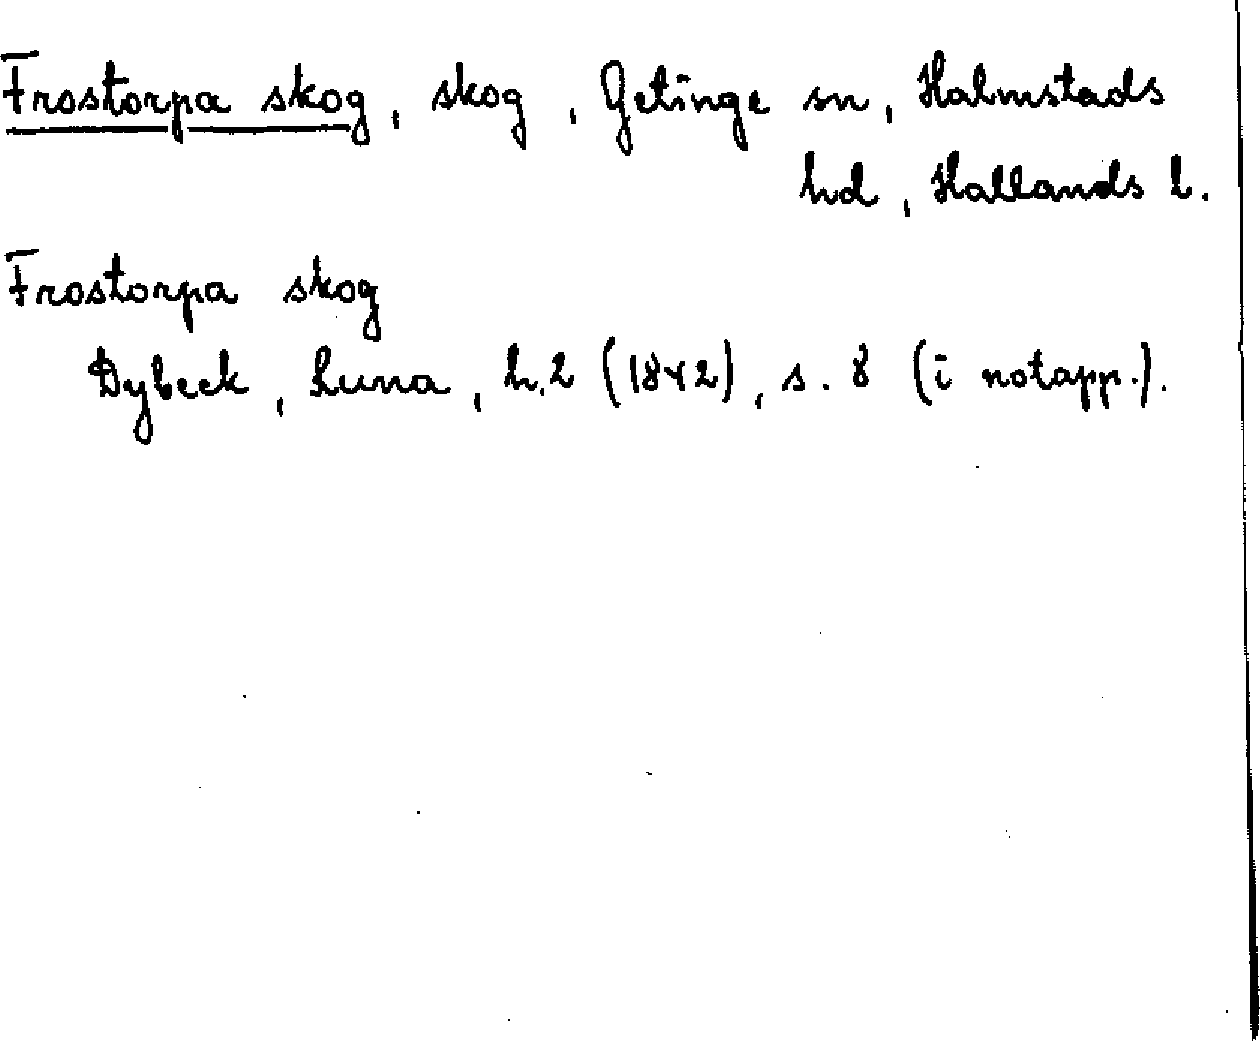 Frostorpa skog, skog, Getinge sn, Halmstads
hd, Hallands l.
Frostorpa skog
Dybeck, Runa, h. 2 (1842), s. 8 (i notapp.).